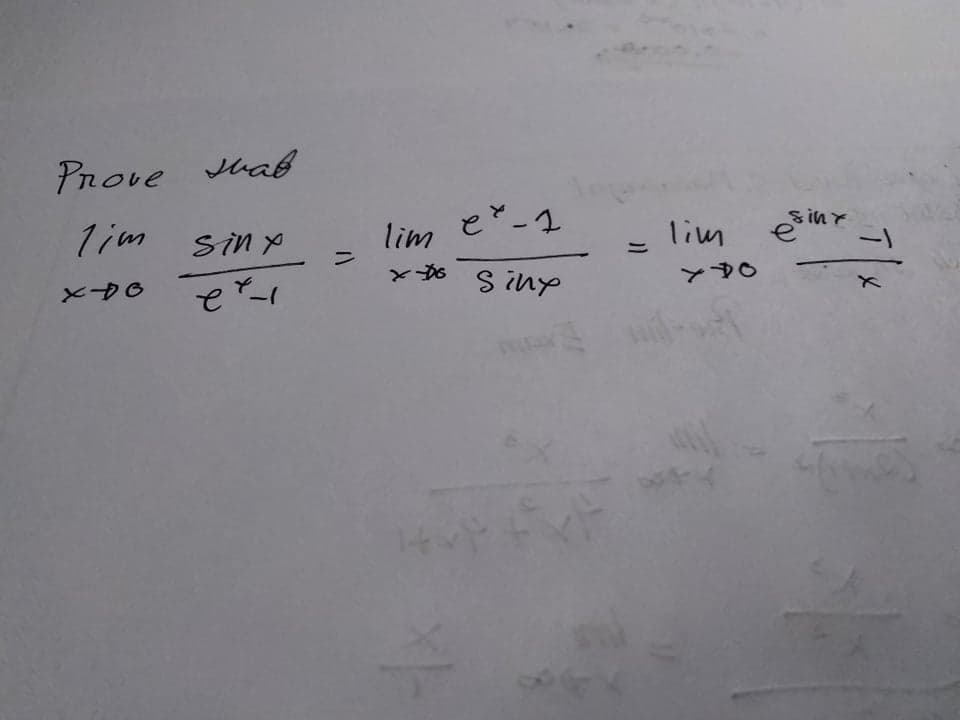 Prove that
lim x→0 sin x / e^x-1 = lim x→0 e^x-1 / sin x = lim x→0 e^sin x -1 / x